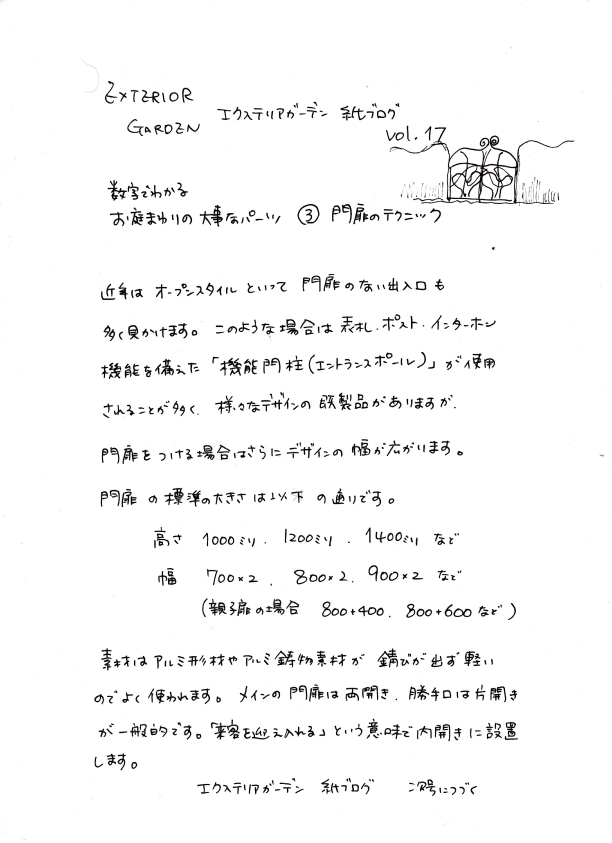 EXTERIOR
GARDEN エクステリアガーデン 紙ブログ
vol.17
数字でわかる
お庭まわりの大事なパーツ ③ 門扉のテクニック
近年は オープンスタイル といって 門扉のない出入口も
多く見かけます。このような場合は 表札.ポスト.インターホン
機能を備えた「機能門柱(エントランスポール)」が使用
されることが多く、様々なデザインの既製品がありますが、
門扉をつける場合はさらにデザインの幅が広がります。
門扉の標準の大きさは以下の通りです。
高さ 1000ミリ、1200ミリ、1400ミリ など
幅 700×2、800×2、900×2 など
(親子扉の場合 800+400、800+600など)
素材はアルミ形材やアルミ鋳物素材が 錆びが出ず軽い
のでよく使われます。メインの門扉は両開き、勝手口は片開き
が一般的です。「来客を迎え入れる」という意味で内開きに設置
します。
エクステリアガーデン 紙ブログ 次号につづく